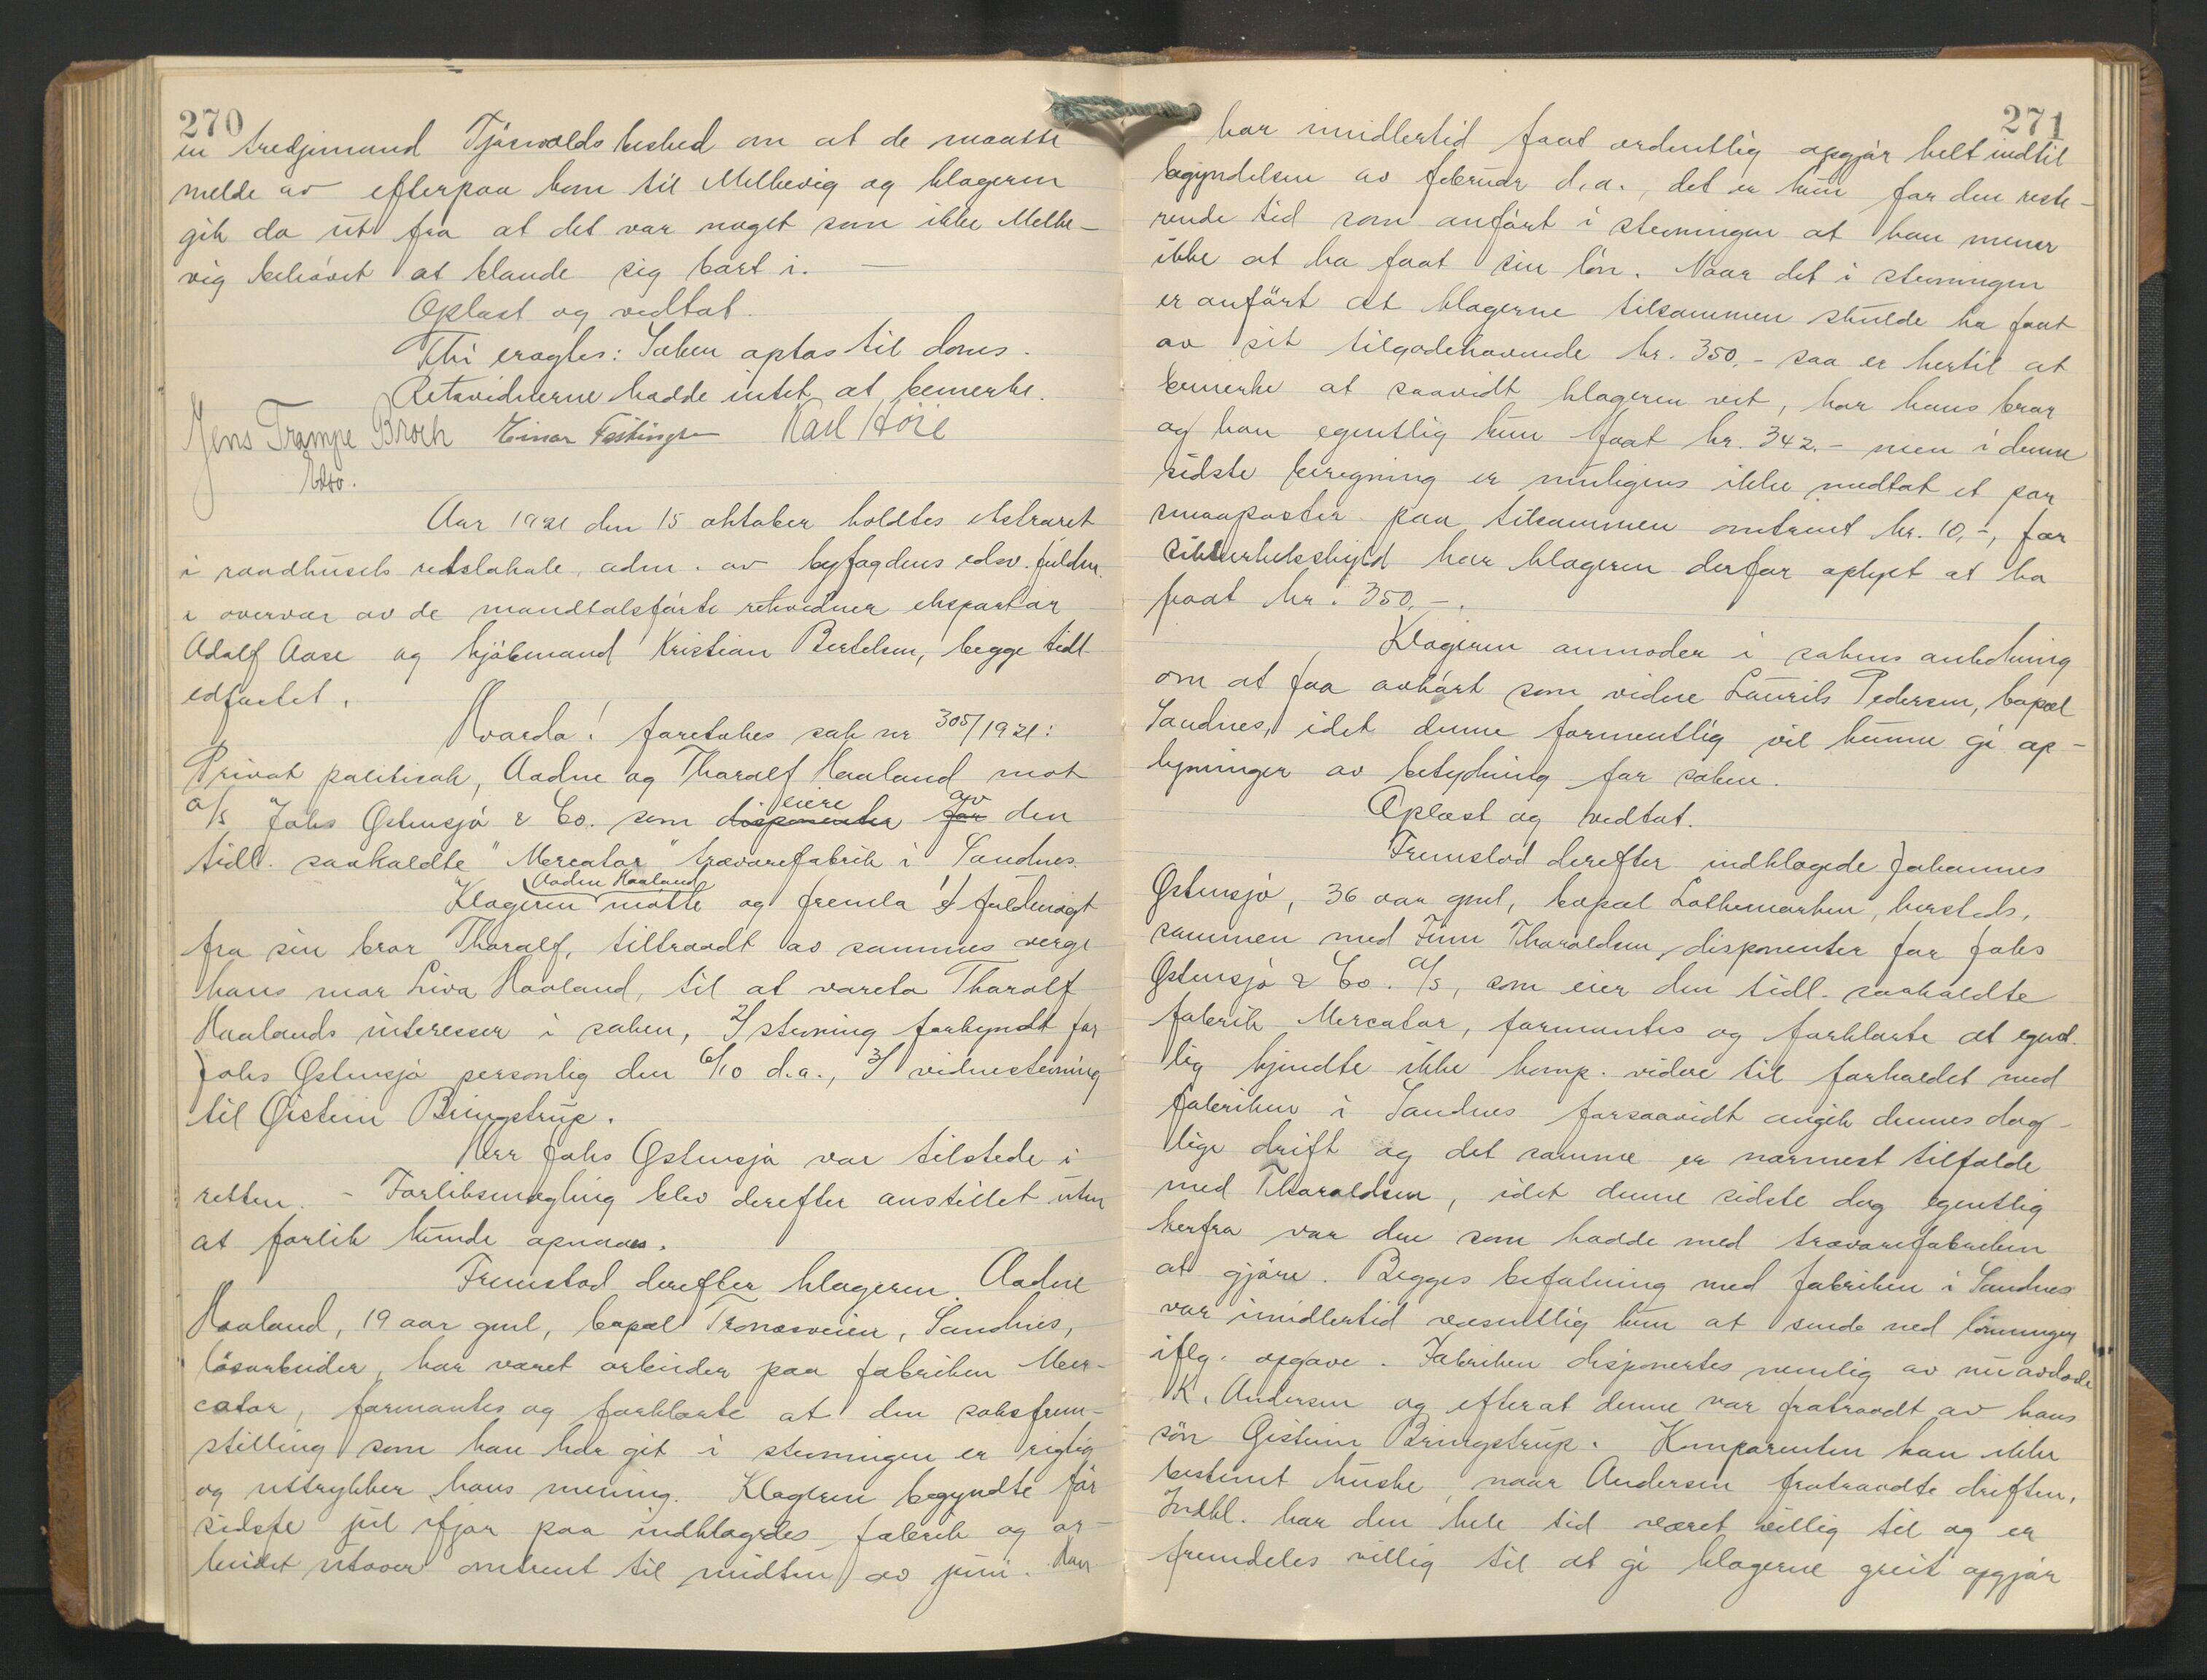 270
en tredjemand Tjösvolds besked om at de maatte
melde av efterpaa kom til Melkevig og klageren
gik da ut fra at det var noget som ikke Melke-
vig behövet at blande sig bort i. —
Oplæst og vedtat.
Thi eragtes: Saken optas til doms.
Retsvidnerne hadde intet at bemerke.
Jens Trampe Broch Einar Karl Höie
Edsv.
Aar 1921 den 15 oktober holdtes ekstraret
i raadhusets retslokale, adm. av byfogdens edsv. fuldm.
i overvær av de mandtalsförte retsvidner eksportør
Adolf Aase og kjöbmand Kristian Bertelsen, begge tidl
edfæstet.
Hvorda! foretokes sak nr 305/1921:
Privat politisak, Aadne og Tharalf Haaland mot
a/s Johs Østensjö & Co. som disponenter eiere for av den
tidl. saakaldte "Mercator" trævarefabrik i Sandnes.
Klageren Aadne Haaland mötte og fremla 1/ fuldmagt
fra sin bror Tharalf, tiltraadt av sammes verge
hans mor Liva Haaland, til at vareta Tharalf
Haalands interesser i saken, 2/ stevning forkyndt for
Johs Østensjö personlig den 6/10 d.a., 3/ vidnestevning
til Øistein Bringstrup.
Herr Johs Østensjö var tilstede i
retten. - Forliksmægling blev derefter anstillet uten
at forlik kunde opnaaes.
Fremstod derefter klageren Aadne
Haaland, 19 aar gml, bopæl Tronesveien, Sandnes,
lösarbeider, har været arbeider paa fabriken Mer-
cator, formantes og forklarte at den saksfrem-
stilling som han har git i stevningen er rigtig
og uttrykker hans mening. Klageren begyndte för
sidste jul ifjor paa indklagedes fabrik og ar-
beidet utover omtrent til midten av juni. Han
271
har imidlertid faat ordentlig opgjör helt indtil
begyndelsen av februar d.a., det er kun for den reste-
rende tid som anfört i stevningen at han mener
ikke at ha faat sin lön. Naar det i stevningen
er anfört at klagerne tilsammen skulde ha faat
av sit tilgodehavende kr. 350.- saa er hertil at
bemerke at saavidt klageren vet, har hans bror
og han egentlig kun faat kr. 342.- men i denne
sidste beregning er muligens ikke medtat et par
smaaposter paa tilsammen omtrent kr. 10,-, for
sikkerhetsskyld har klageren derfor oplyst at ha
faat kr. 350.-.
Klageren anmoder i sakens anledning
om at faa avhört som vidne Laurits Pedersen, bopæl
Sandnes, idet denne formentlig vil kunne gi op-
lysninger av betydning for saken.
Oplæst og vedtat.
Fremstod derefter indklagede Johannes
Østensjö, 36 aar gml, bopæl Lothemarken, hersteds,
sammen med Finn Tharaldsen, disponenter for Johs
Østensjö & Co. a/s, som eier den tidl. saakaldte
fabrik Mercator, formantes og forklarte at egent-
lig kjendte ikke komp. videre til forholdet med
fabriken i Sandnes forsaavidt angik dennes dag-
lige drift og det samme er nærmest tilfælde
med Tharaldsen, idet denne sidste dog egentlig
herfra var den som hadde med trævarefabriken
at gjöre. Begges befatning med fabriken i Sandnes
var imidlertid væsentlig kun at sende ned lönninger
iflg. opgave. Fabriken disponertes nemlig av nu avdöde
K. Andersen og efterat denne var fratraadt av hans
sön Øistein Bringstrup. Komparenten kan ikke
bestemt huske, naar Andersen fratraadte driften.
Indkl. har den hele tid været villig til og er
fremdeles villig til at gi klagerne greit opgjör